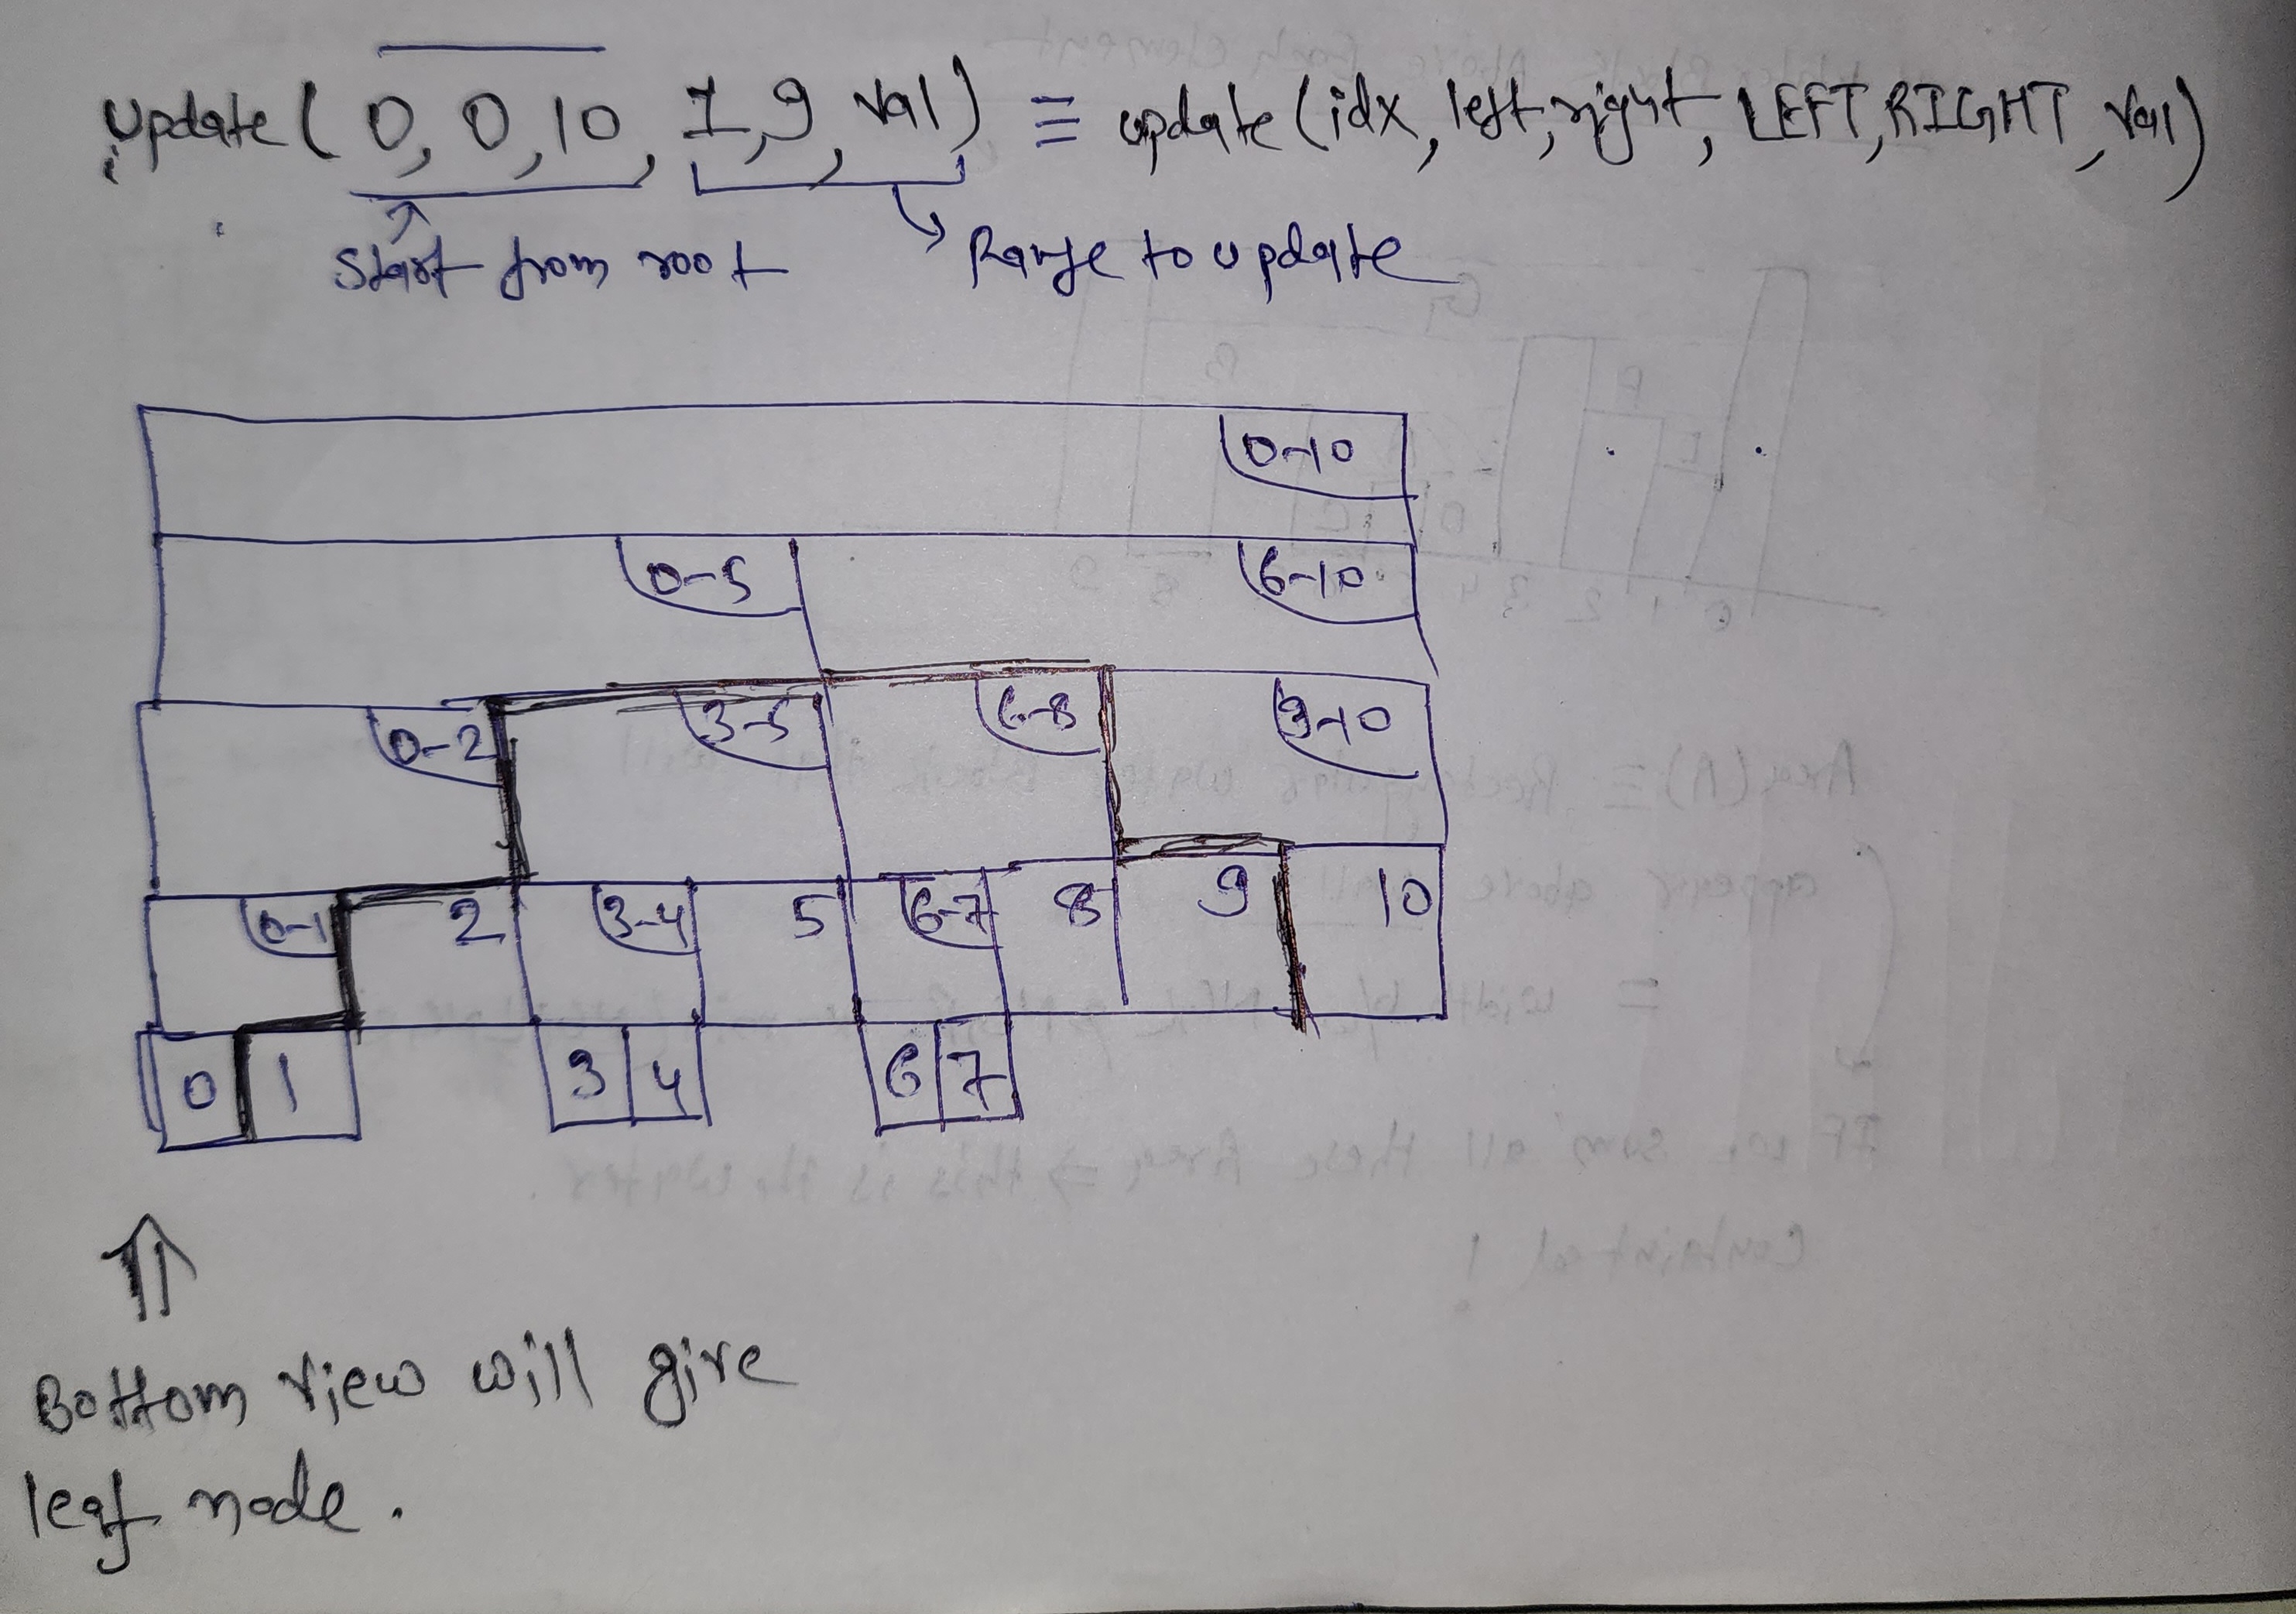 update( 0, 0, 10, 1, 9, val) ≡ update (idx, left, right, LEFT, RIGHT, val)
Start from root
Range to update
0-10
0-5 6-10
0-2 3-5 6-8 9-10
0-1 2 3-4 5 6-7 8 9 10
0 1 3 4 6 7
Bottom view will give
leaf node.